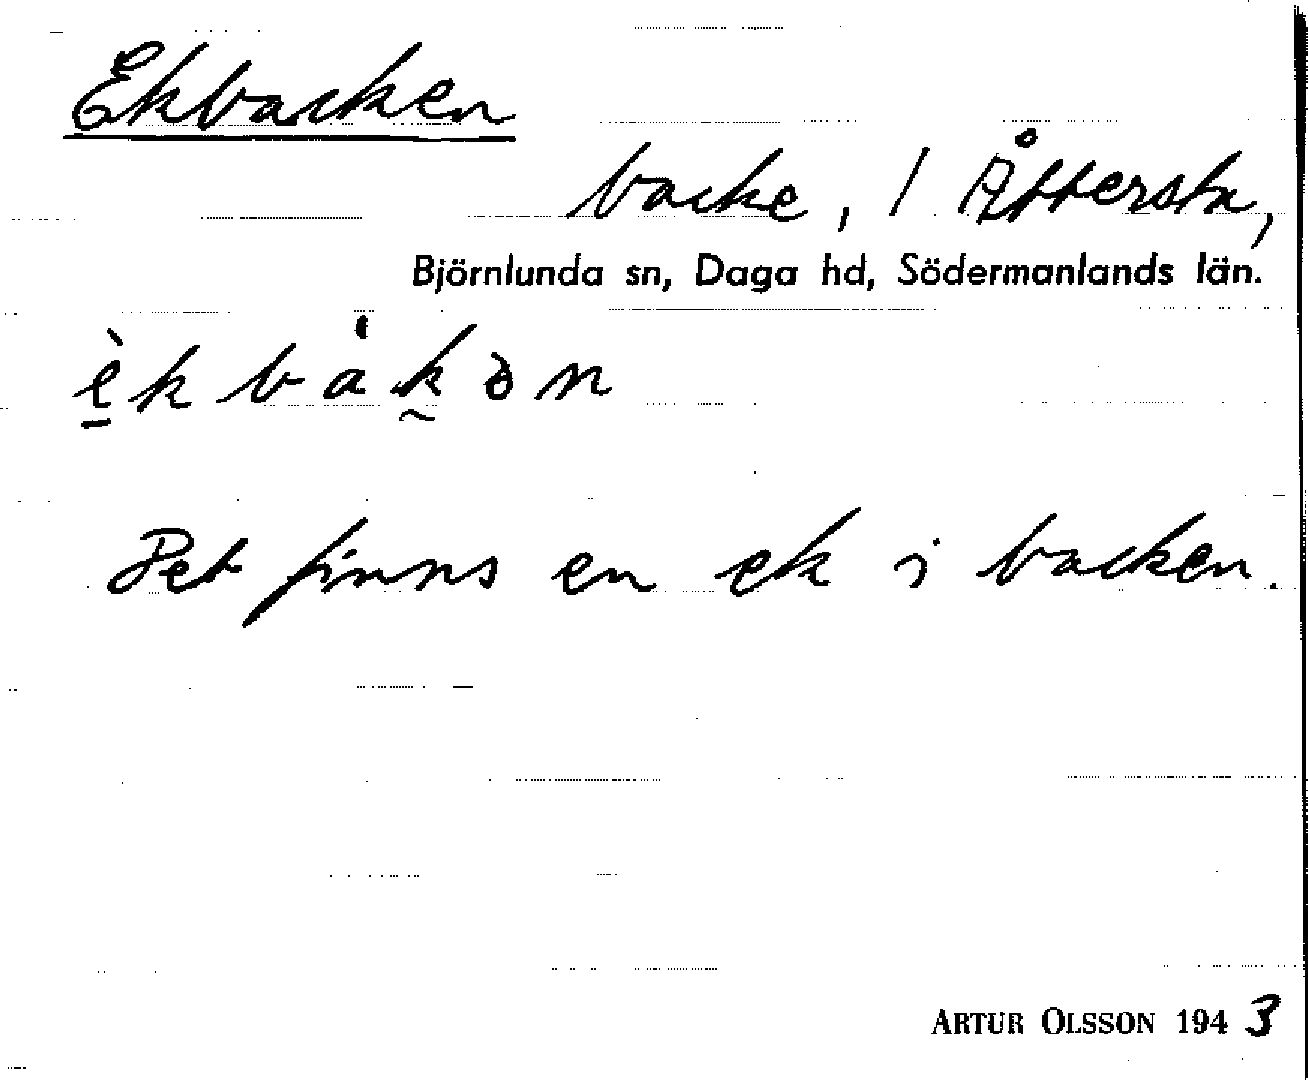 Ekbacken
backe, 1 Åttersta,
Björnlunda sn, Daga hd, Södermanlands län.
è̱kbák̰ən
Det finns en ek i backen.
ARTUR OLSSON 1943